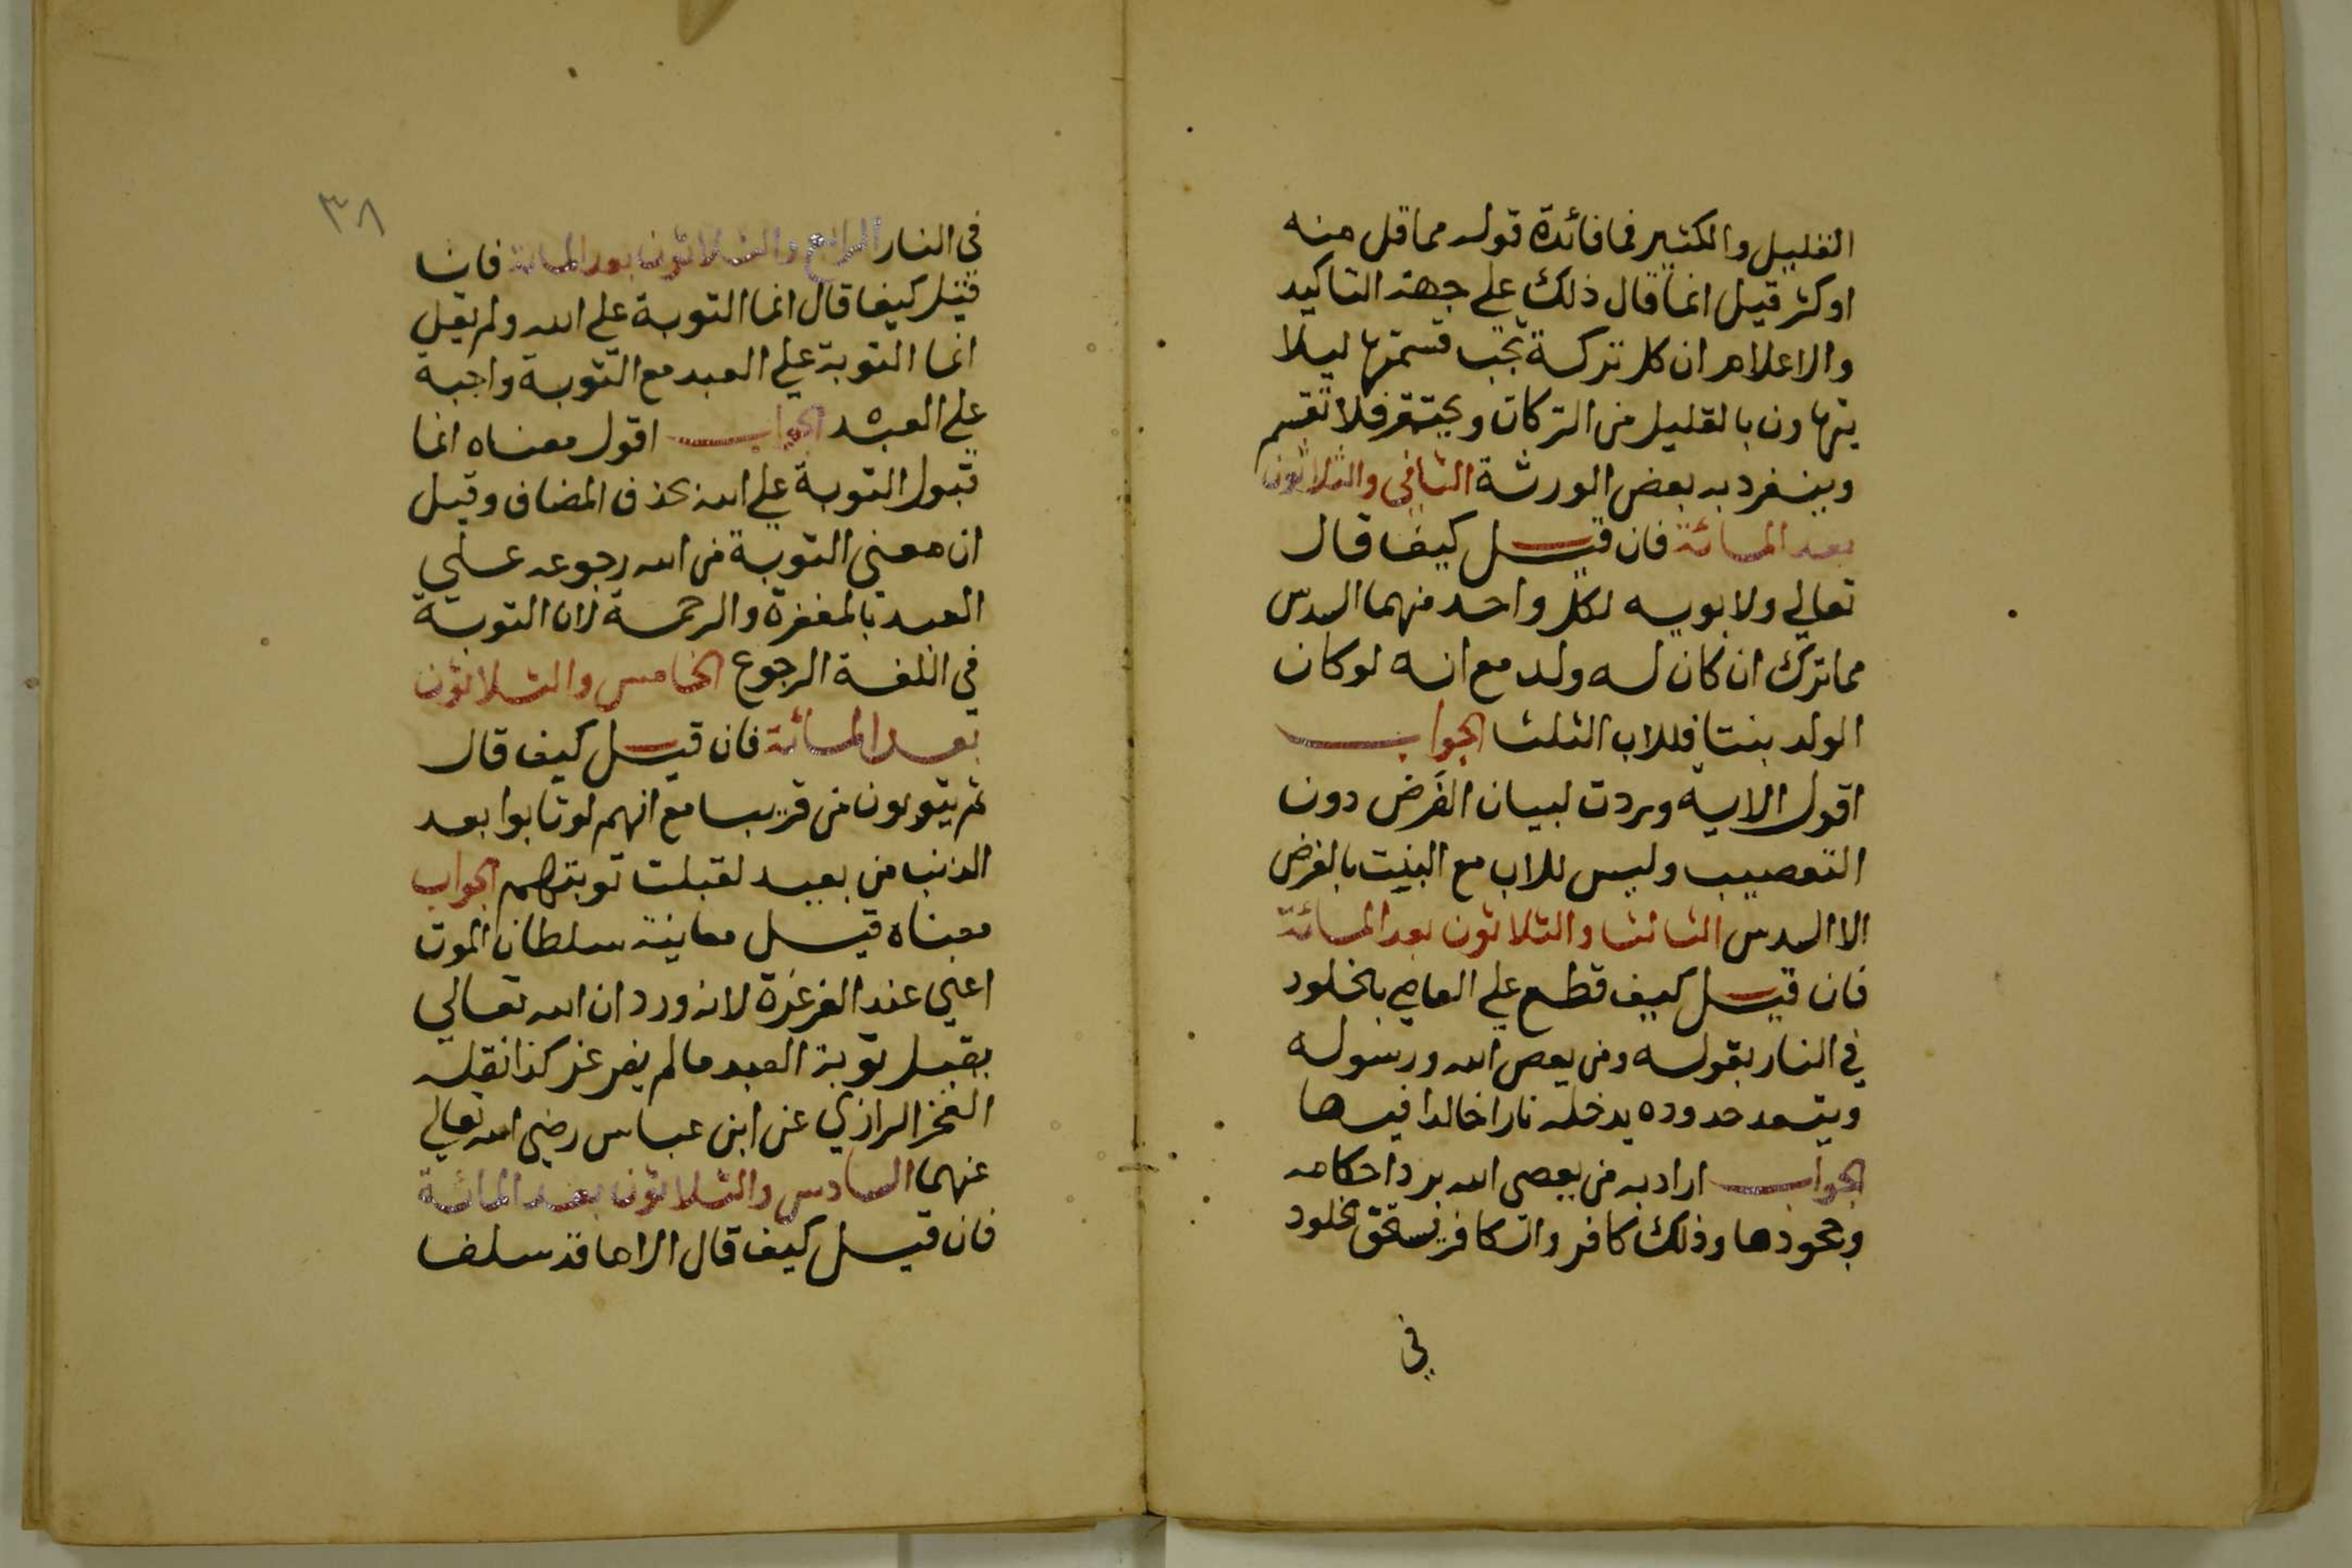 القليل والكثير فما فائدة قوله مما قل منه
او كثر قيل انما قال ذلك على جهة التاكيد
والاعلام ان كل تركة تجب قسمتها ليلا
يتهاون بالقليل من التركات ويحتقر فلا تقسم
وينفرد به بعض الورثة الثاني والثلاثون
بعد المائة فان قيل كيف قال
تعالي ولابويه لكل واحد منهما السدس
مما ترك ان كان له ولد مع انه لو كان
الولد بنتا فللاب الثلث الجواب
اقول الاية وردت لبيان الفرض دون
التعصيب وليس للاب مع البنت بالفرض
الا السدس الثالث والثلاثون بعد المائة
فان قيل كيف قطع علي العاصي بالخلود
في النار بقوله ومن يعص الله ورسوله
ويتعد حدوده يدخله نارا خالدا فيها
الجواب اراد به من يعصي الله برد احكامه
وجحودها وذلك كافر والكافر يستحق الخلود
في
٣٨
في النار الرابع والثلاثون بعد المائة فان
قيل كيف قال انما التوبة علي الله ولم يقل
انما التوبة علي العبد مع التوبة واجبة
علي العبد الجواب اقول معناه انما
قبول التوبة علي الله بحذف المضاف وقيل
ان معني التوبة من الله رجوعه علي
العبد بالمغفرة والرحمة لان التوبة
في اللغة الرجوع الخامس والثلاثون
بعد المائة فان قيل كيف قال
ثم يتوبون من قريب مع انهم لو تابوا بعد
الذنب من بعيد لقبلت توبتهم الجواب
معناه قبل معاينة سلطان الموت
اعني عند الغرغرة لانه ورد ان الله تعالي
يقبل توبة العبد ما لم يغرغر كذا نقله
الفخر الرازي عن ابن عباس رضي الله تعالي
عنهما السادس والثلاثون بعد المائة
فان قيل كيف قال الا ما قد سلف